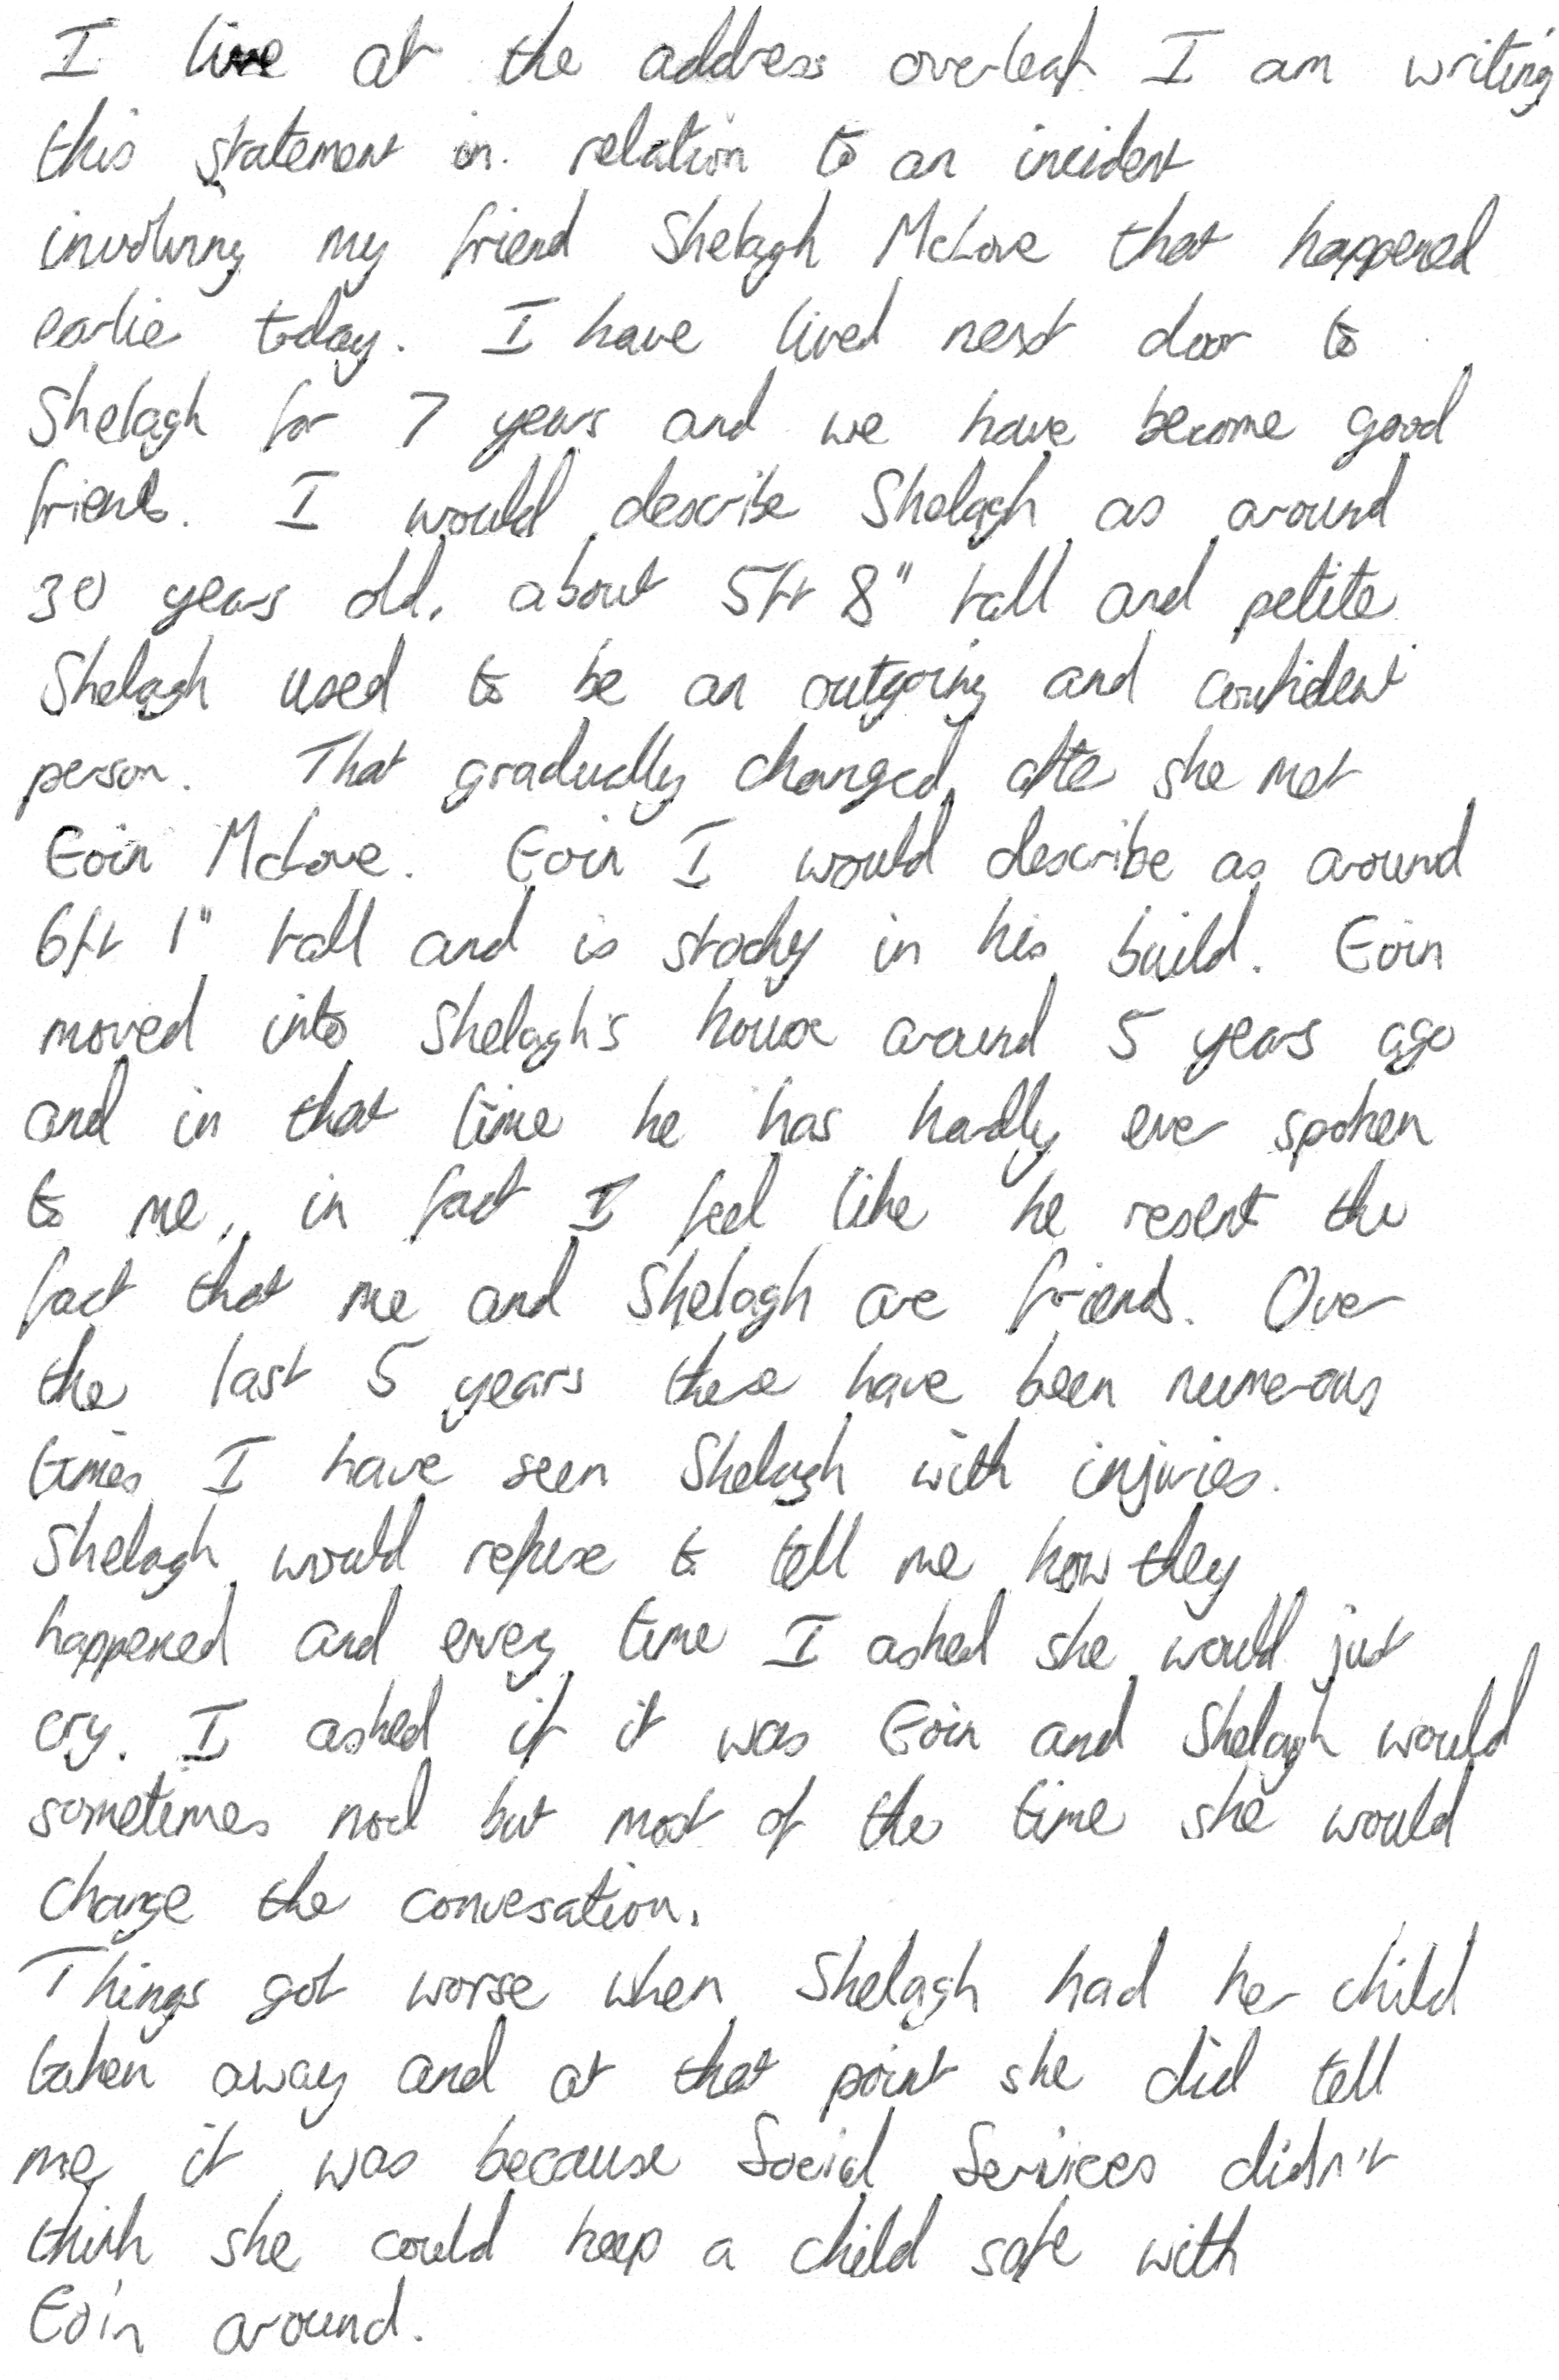 I live at the address overleaf I am writing
this statement in. relation to an incident
involving my friend Shelagh McLove that happened
earlie today. I have lived next door to
Shelagh for 7 years and we have become good
friends. I would describe Shelagh as around
30 years old, about 5ft 8" tall and petite
Shelagh used to be an outgoing and confident
person. That gradually changed after she met
Eoin McLove. Eoin I would describe as around
6ft 1" tall and is stocky in his build. Eoin
moved into Shelagh's house around 5 years ago
and in that time he has hardly ever spoken
to me, in fact I feel like he resent the
fact that me and Shelagh are friends. Over
the last 5 years there have been numerous
times I have seen Shelagh with injuries.
Shelagh would refuse to tell me how they
happened and every time I asked she would just
cry. I asked if it was Eoin and Shelagh would
sometimes nod but most of the time she would
change the conversation.
Things got worse when Shelagh had her child
taken away and at that point she did tell
me it was because Social Services didn't
think she could keep a child safe with
Eoin around.